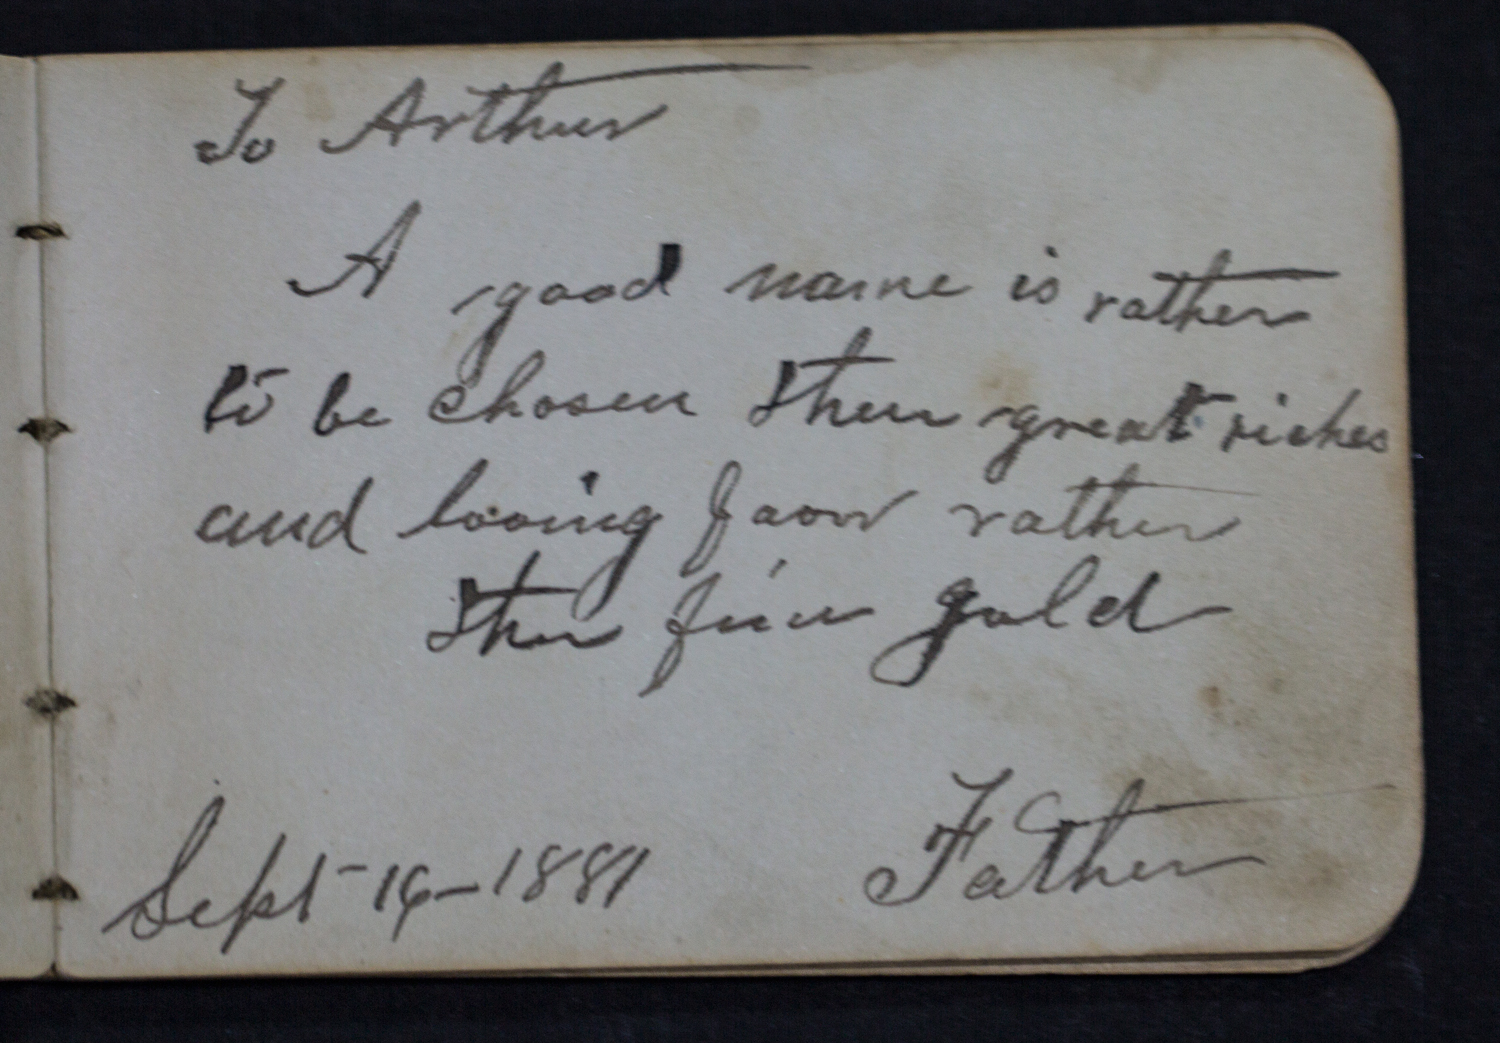 To Arthur
A good name is rather
to be chosen then great riches
and loving favor rather
then fine gold
Father
Sept 16 - 1881